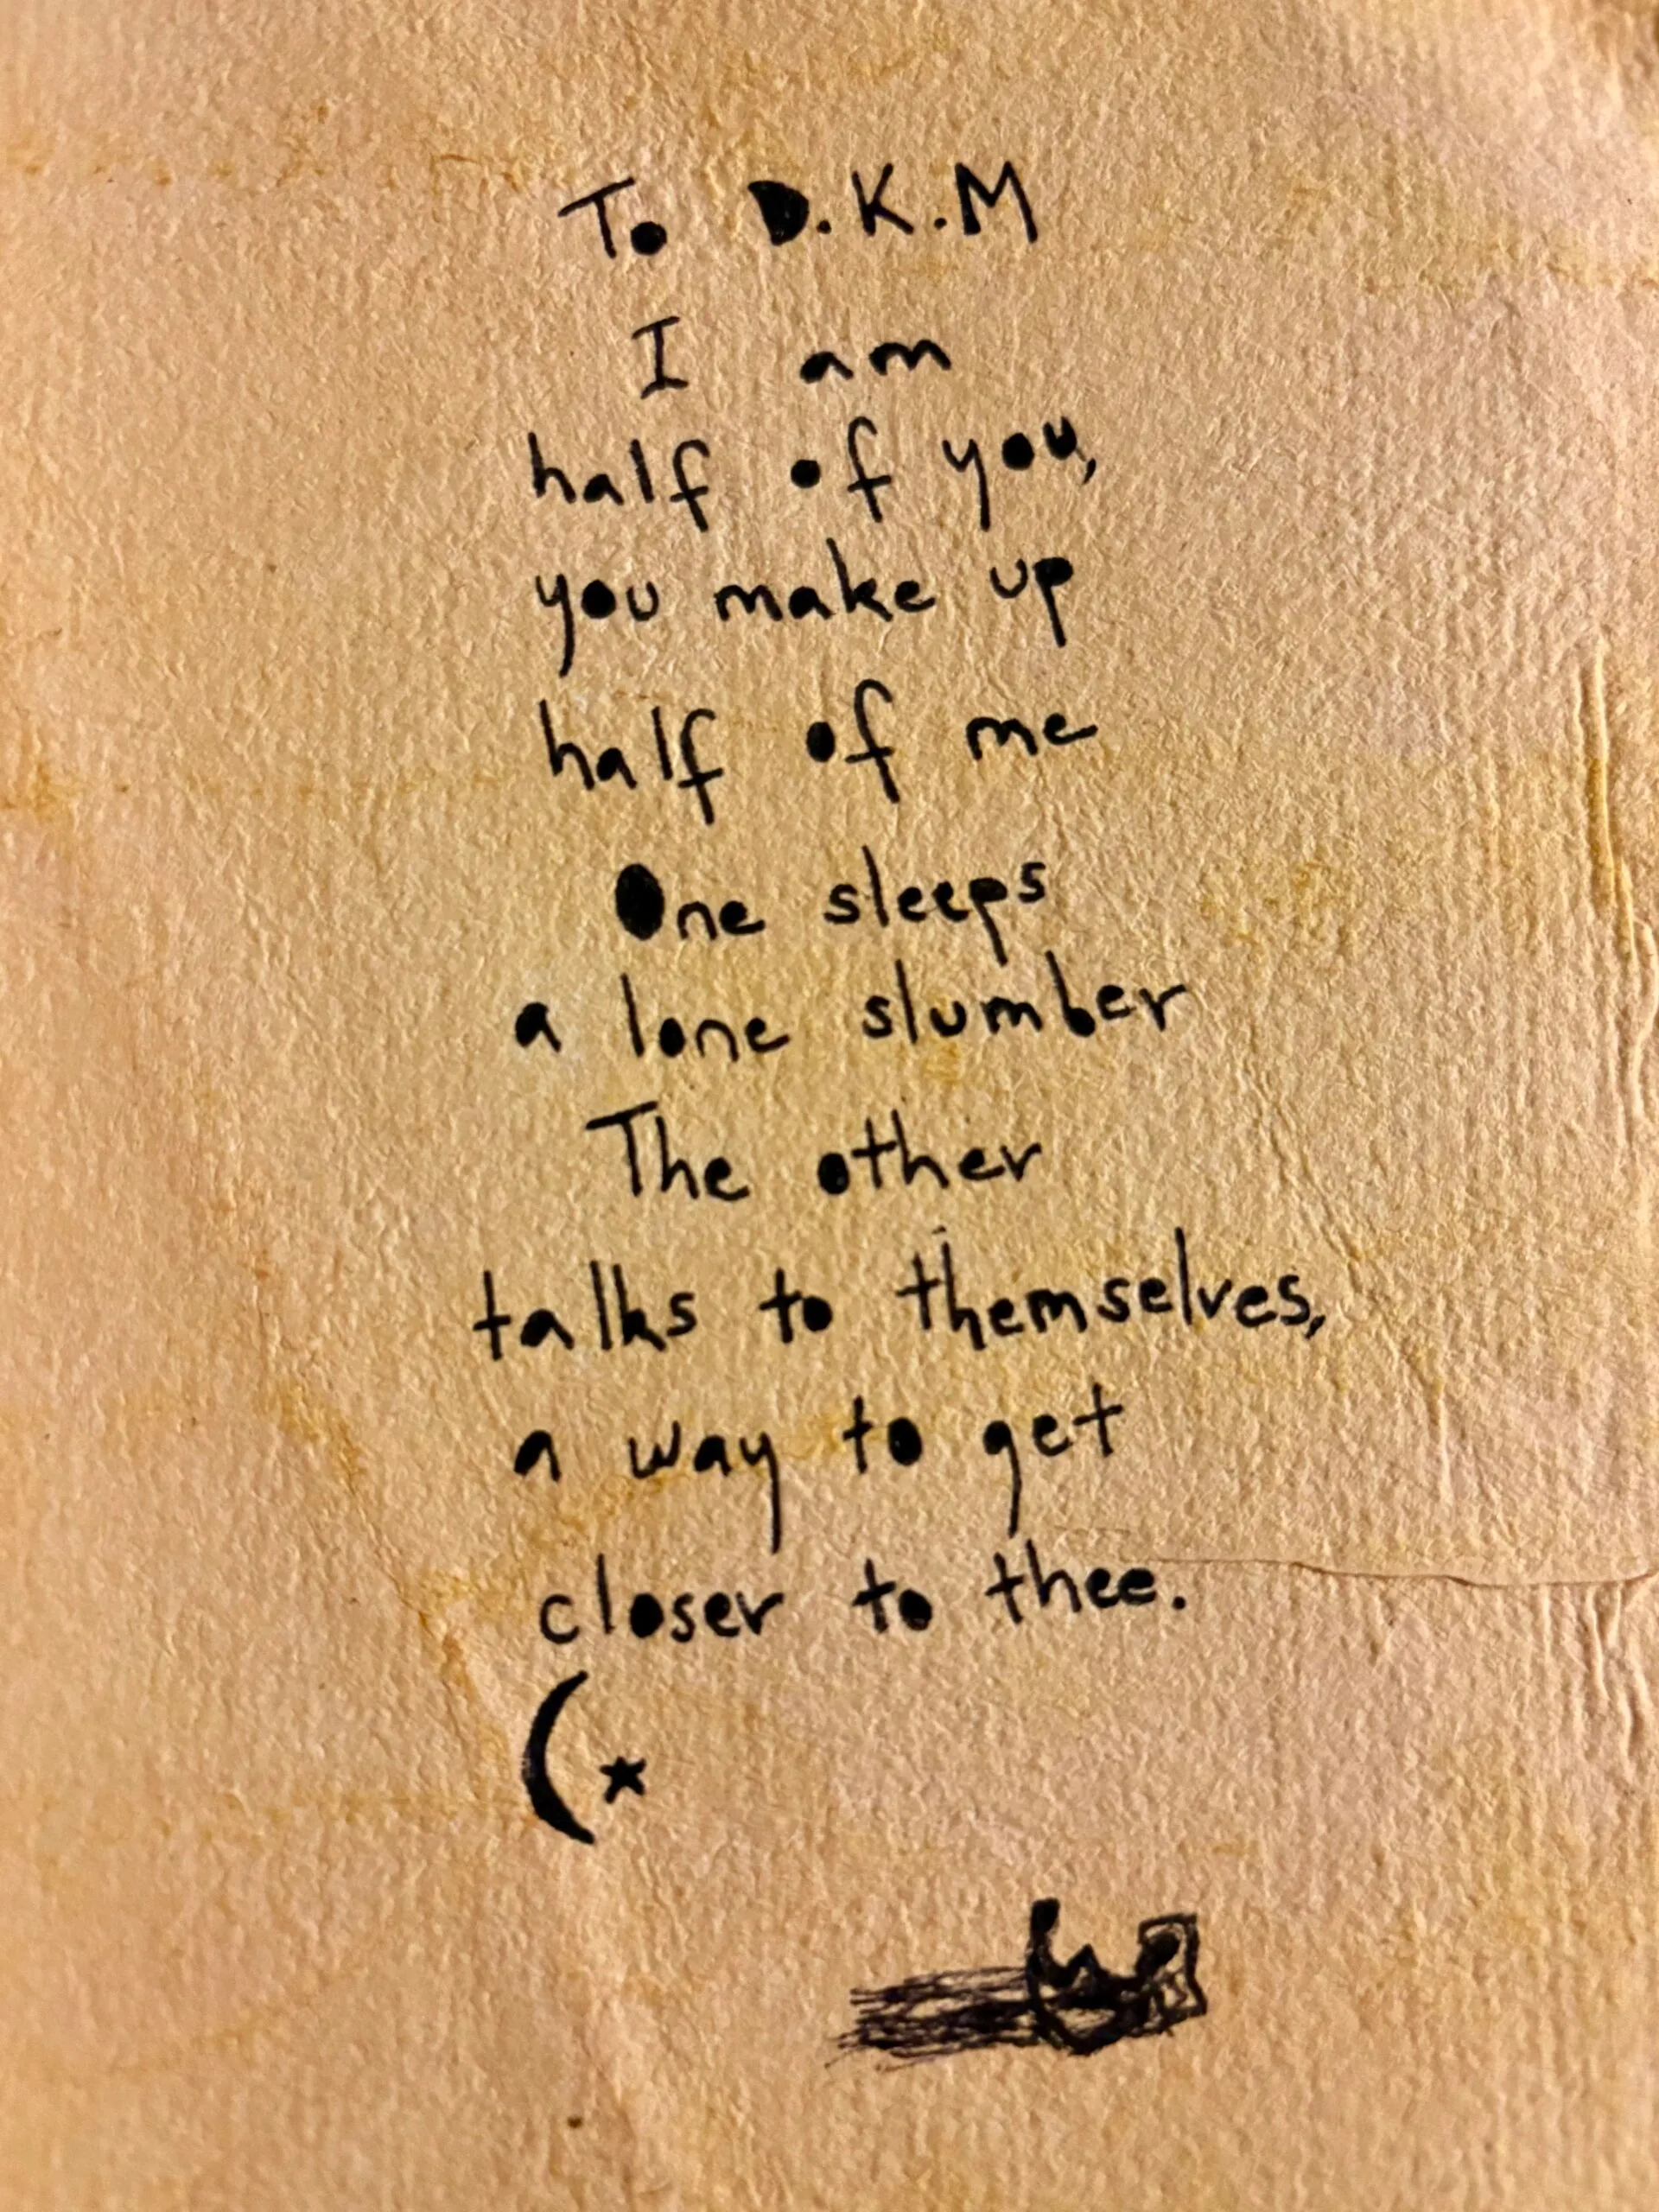 To D.K.M
I am
half of you,
you make up
half of me
One sleeps
a lone slumber
The other
talks to themselves,
a way to get
closer to thee.